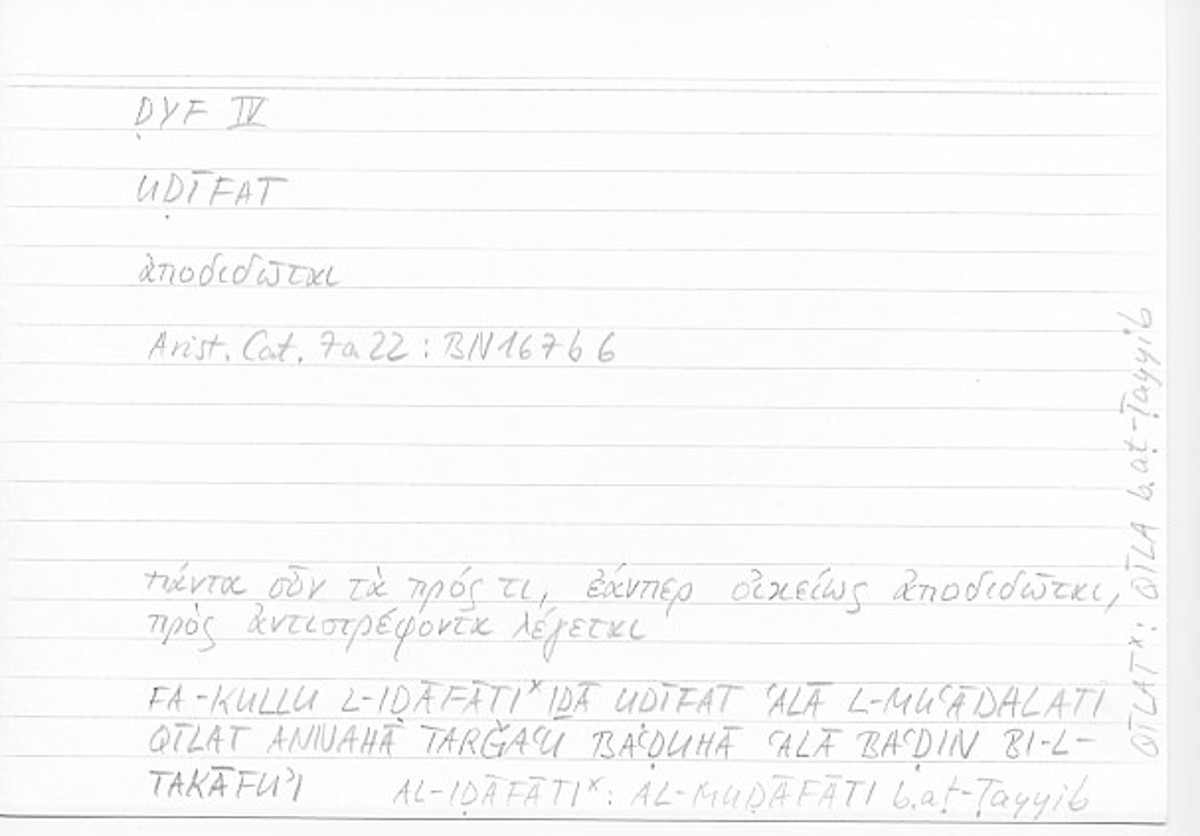 ḌYF IV
UḌĪFAT
ἀποδιδῶται
Arist. Cat. 7a22 : BN167b6
πάντα οὖν τὰ πρός τι, ἐάνπερ οἰκείως ἀποδιδῶται,
πρὸς ἀντιστρέφοντα λέγεται
FA-KULLU L-IḌĀFĀTIˣ IḎĀ UḌĪFAT ʿALĀ L-MUʿĀDALATI
QĪLAT ANNAHĀ TARǦAʿU BAʿḌUHĀ ʿALĀ BAʿḌIN BI-L-
TAKĀFUʾI AL-IḌĀFĀTIˣ: AL-MUḌĀFĀTI b.aṭ-Ṭayyib
QĪLATˣ: QĪLA b.aṭ-Ṭayyib